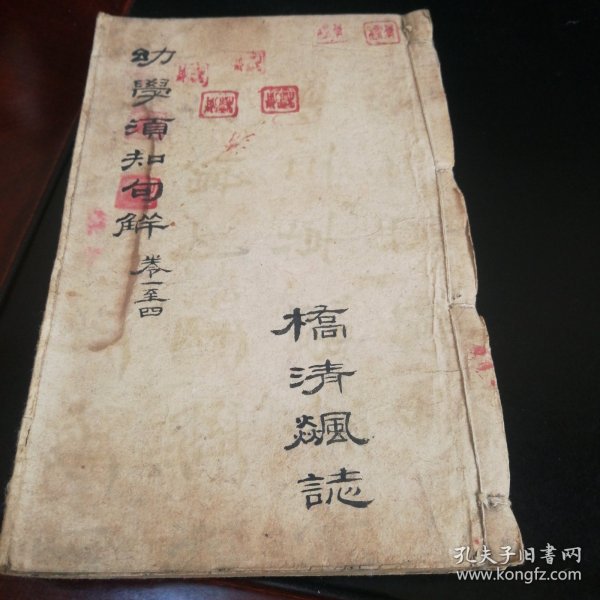 幼學須知句解 卷一至四
橋清飆誌
孔夫子旧書网
www.kongfz.com